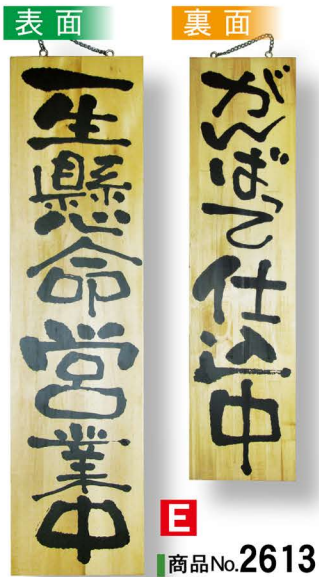 表面
一生懸命営業中
裏面
がんばって仕込中
E
商品No.2613